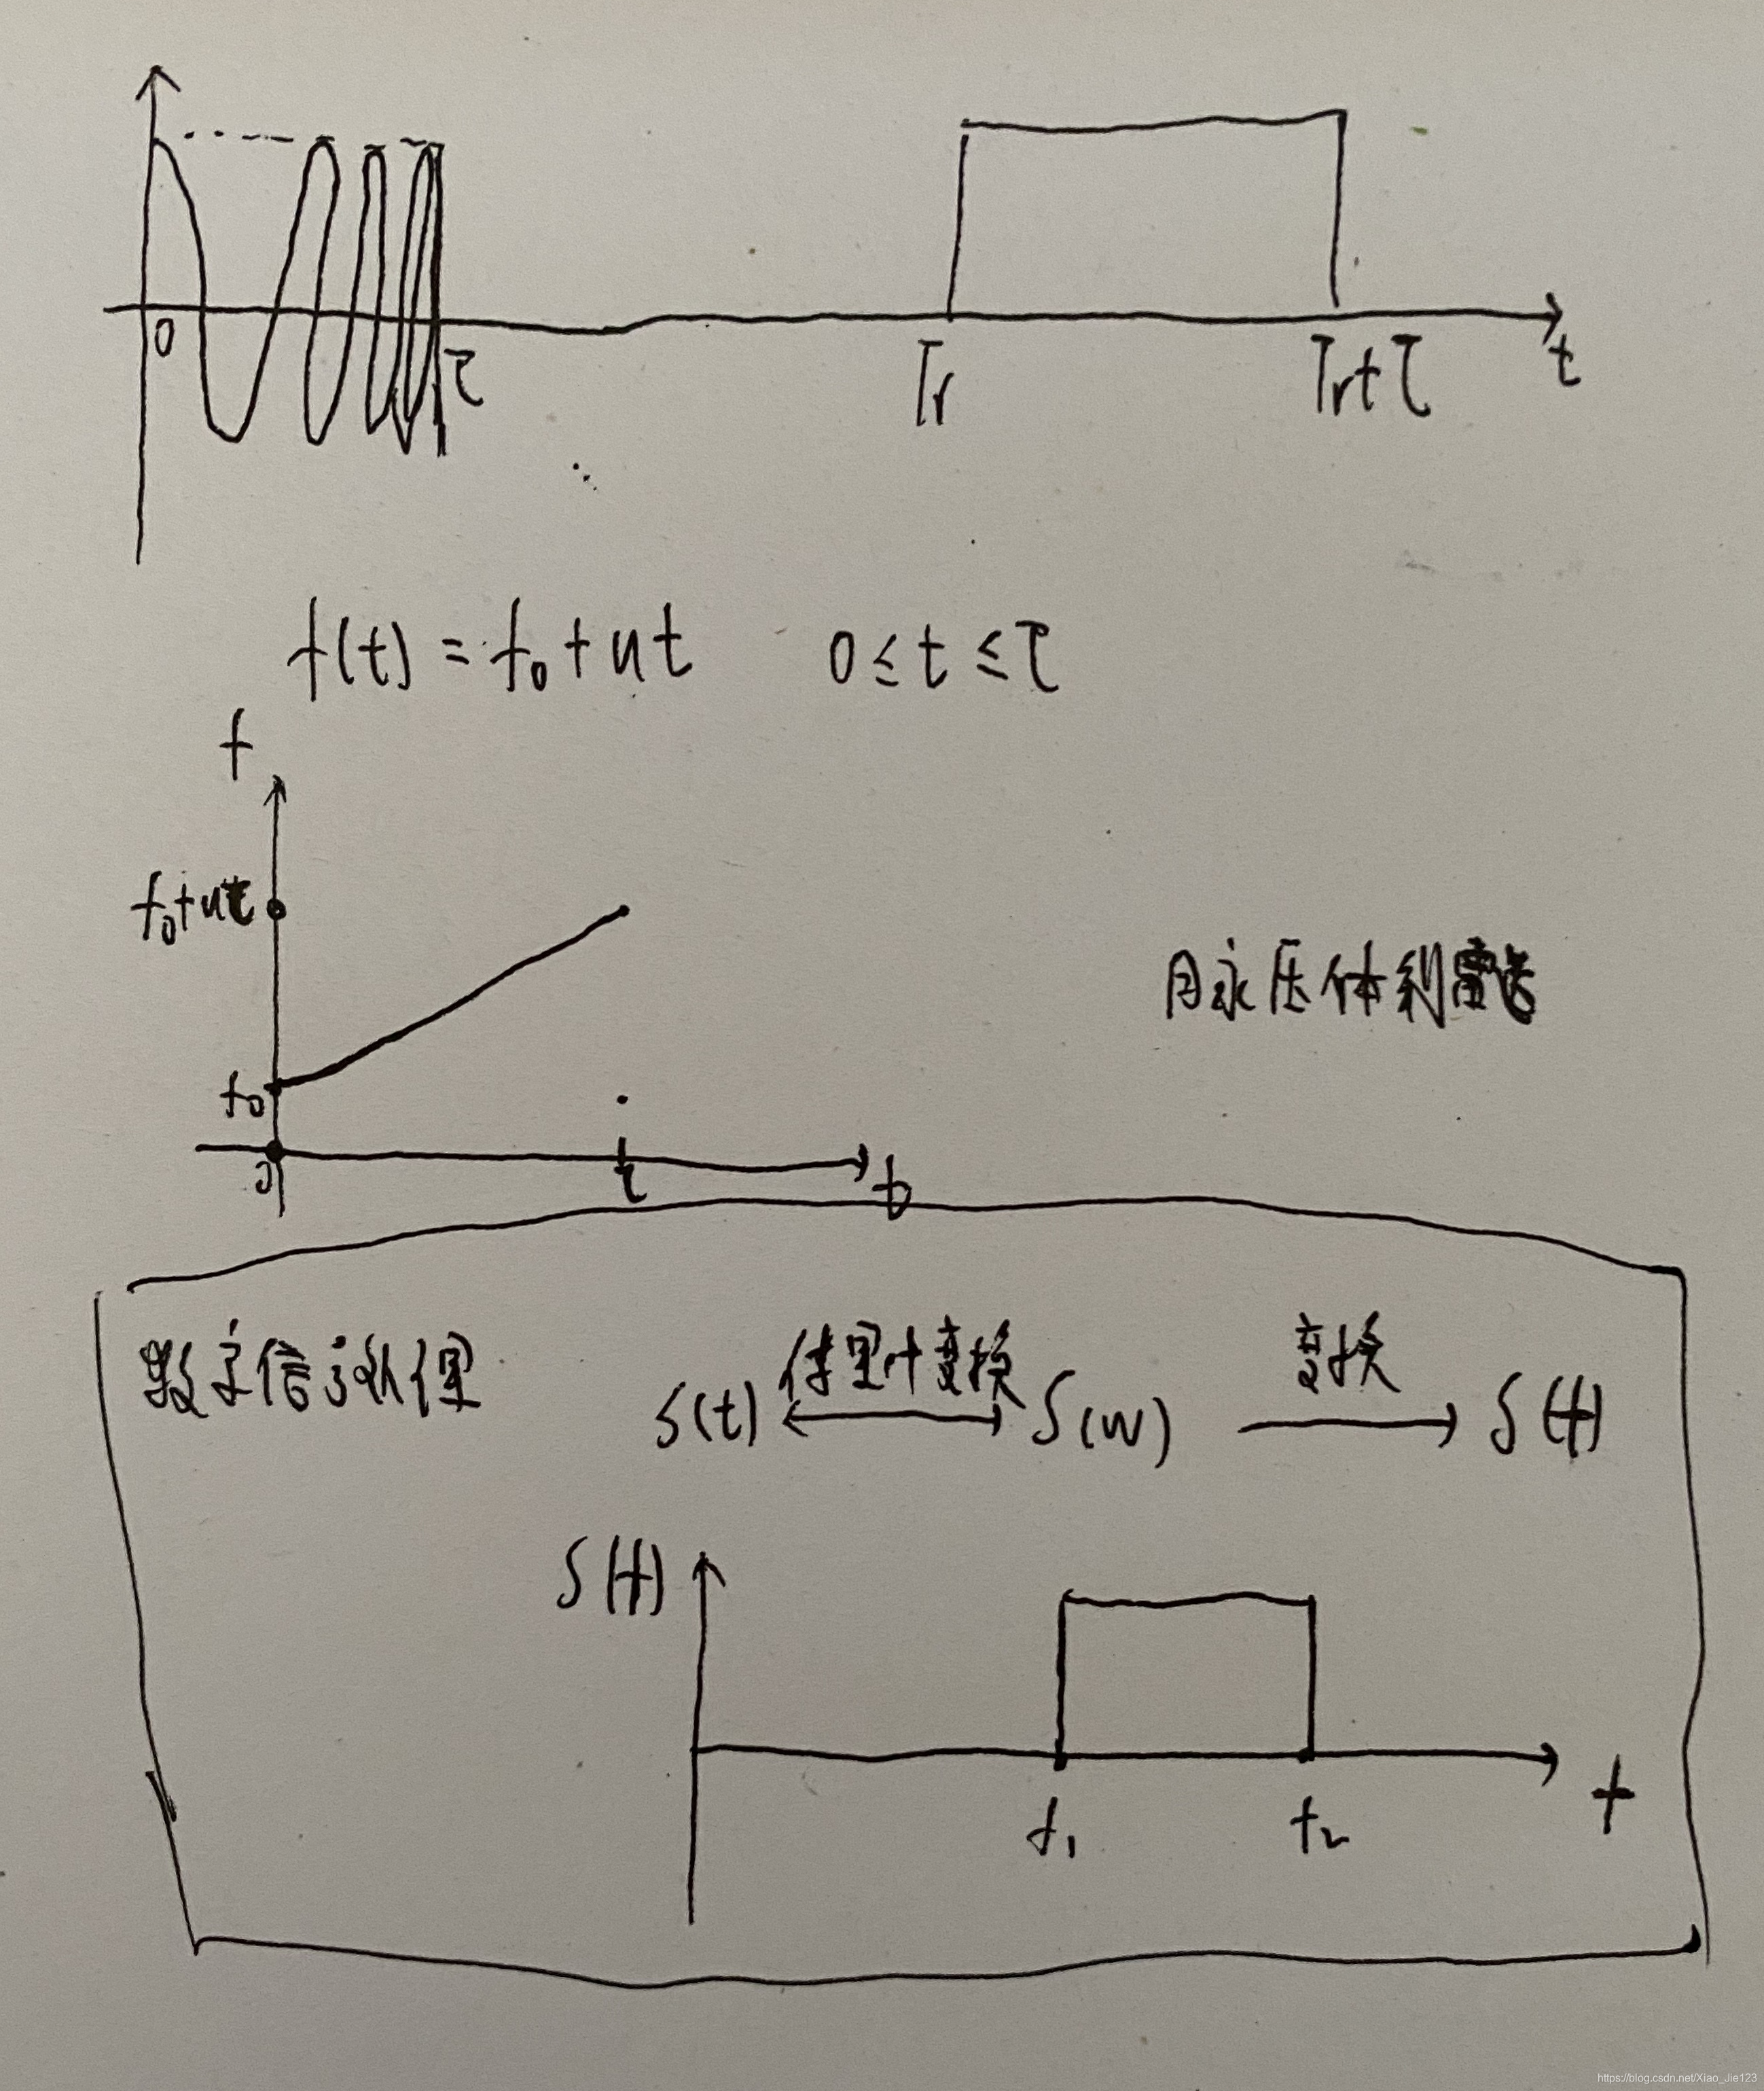 0 τ Tr Tr+τ t
f(t) = f₀ + ut 0 ≤ t ≤ τ
f
f₀+uτ
f₀
0 τ t
数字信号处理 S(t) 傅里叶变换 S(w) 变换 S(f)
S(f)
f₁ f₂ f
https://blog.csdn.net/Xiao_Jie123